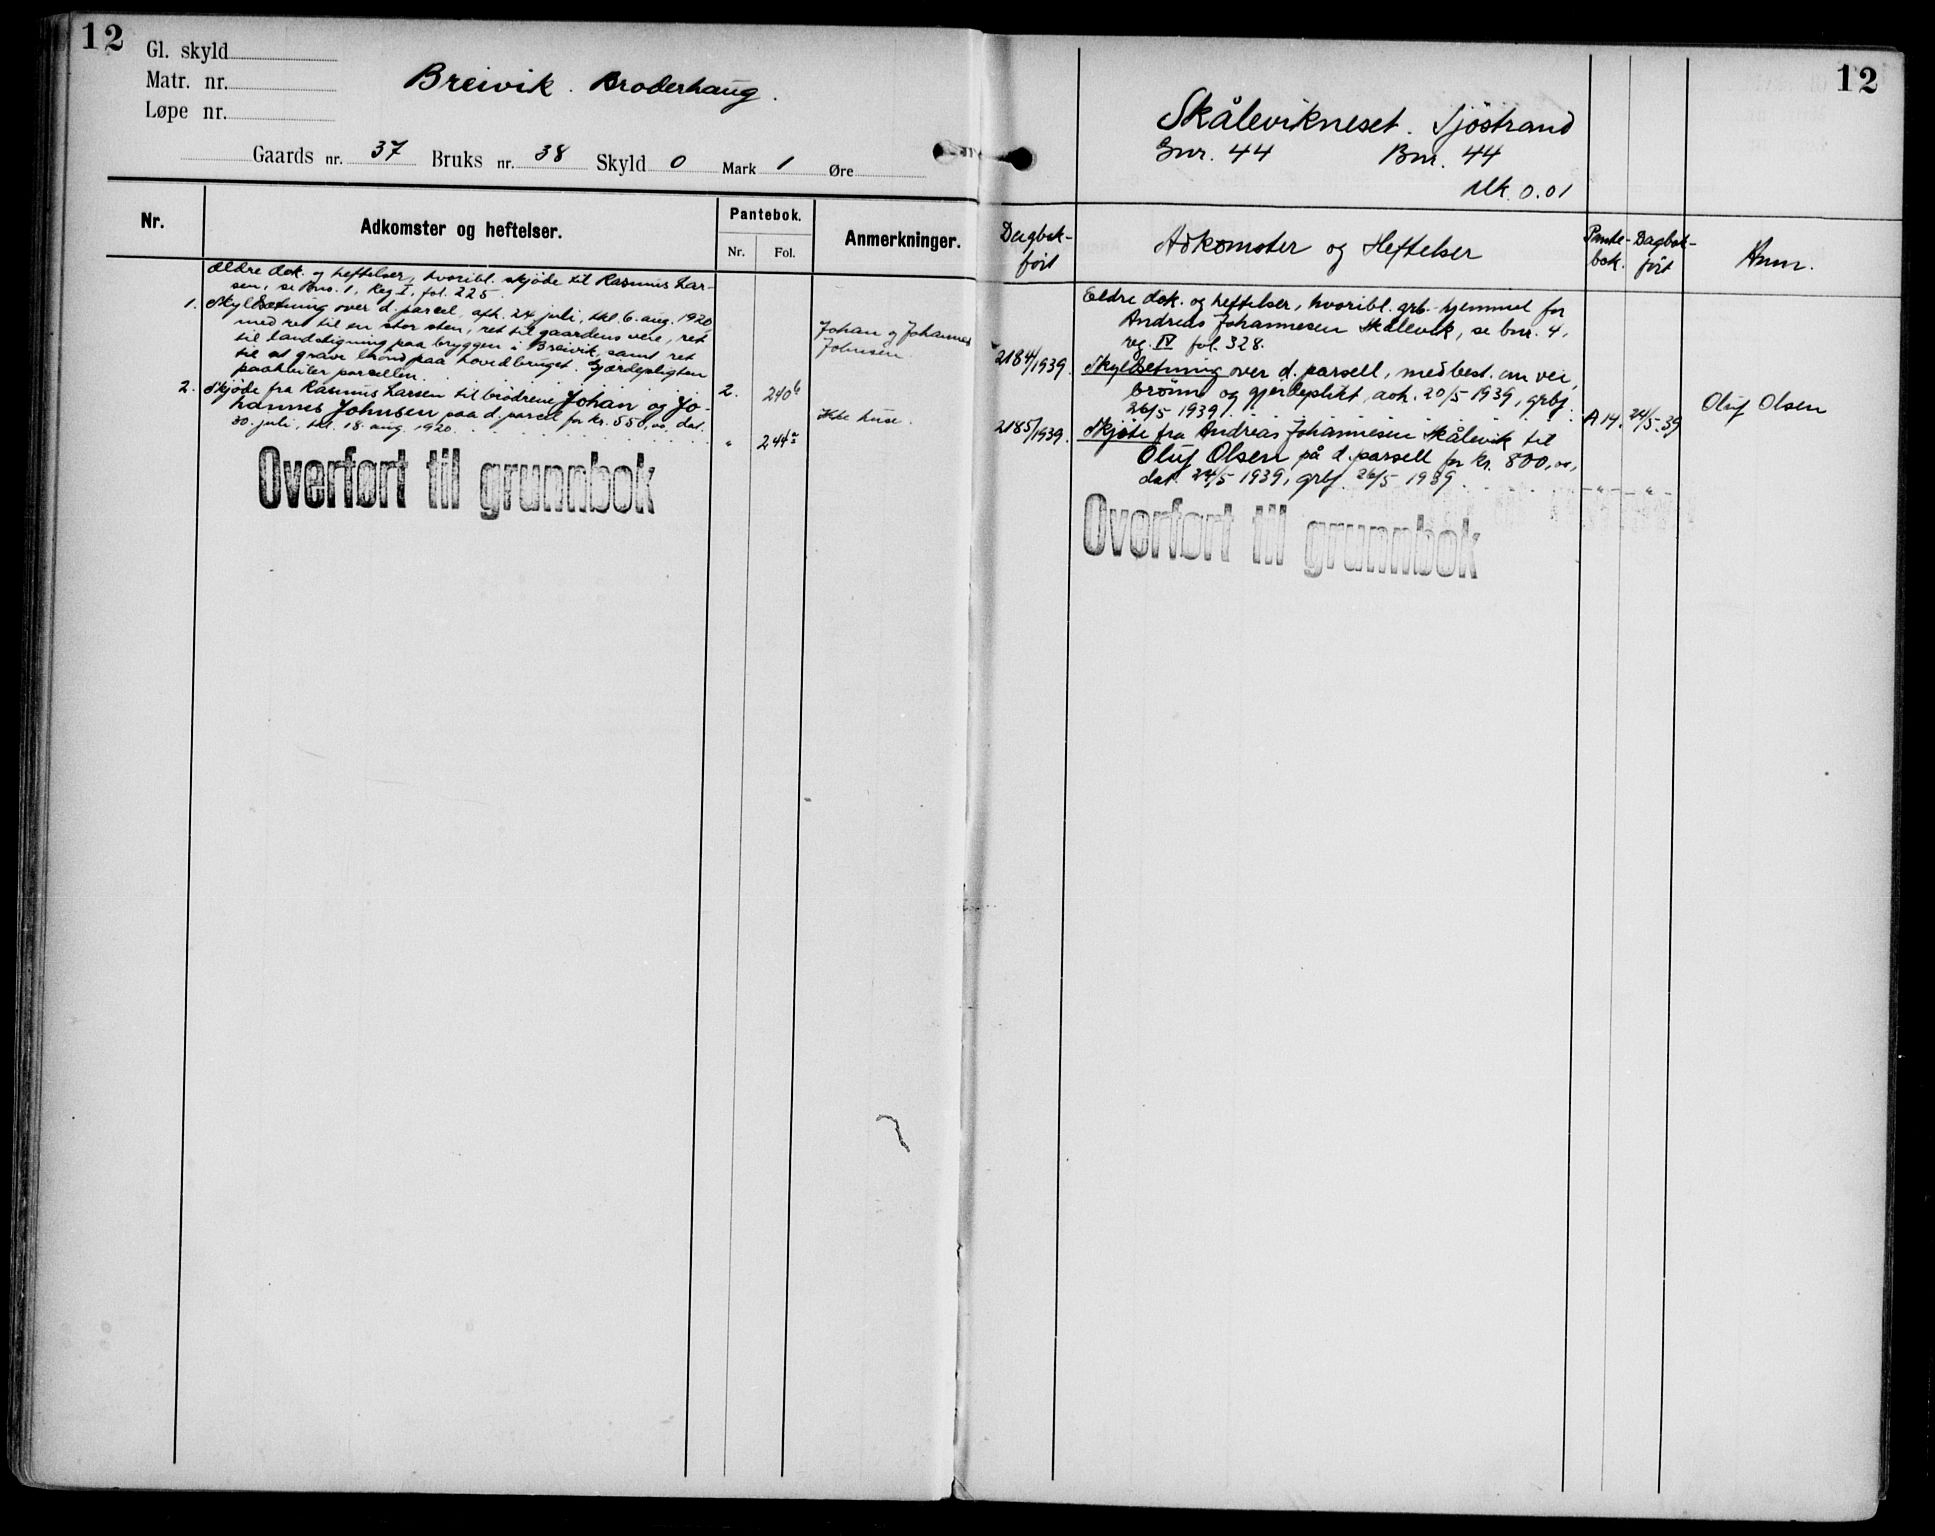 12
Gl. skyld
Matr. nr.
Løpe nr.
Breivik. Broderhaug.
Gaards nr. 37 Bruks nr. 38 Skyld 0 Mark 1 Øre
Nr.
Adkomster og heftelser.
Pantebok.
Nr. Fol.
Anmerkninger.
Ældre dok. og heftelser, hvoribl. skjøde til Rasmus Lar-
sen, se Bno. 1, Reg I, fol. 225.
1. Skyldsetning over d. parcel, afh. 24 juli, tkl. 6. aug. 1920,
med ret til en stor sten, ret til gaardens veie, ret
til landstigning paa bryggen i Breivik, samt ret
til at grave brønd paa hovedbruget. Gjærdepligten
paahviler parcellen. 2. 240b
Johan og Johannes
Johnsen
2. Skjøde fra Rasmus Larsen til brødrene Johan og Jo-
hannes Johnsen paa d. parcel for kr. 550,00, dat.
30. juli, tkl. 18. aug. 1920. " 244a
Ikke huse.
Overført til grunnbok
12
Skålevikneset. Sjöstrand
Gnr. 44 Bnr. 44
Mk. 0.01
Dagbok-
ført
Adkomster og Heftelser
Pante-
bok.
Dagbok-
ført
Anm.
Eldre dok. og heftelser, hvoribl. grb.-hjemmel for
Andreas Johannesen Skålevik, se bnr. 4,
reg. IV fol. 328.
2184/1939. Skyldsetning over d. parsell, med best. om vei,
brönn og gjerdeplikt, avh. 20/5 1939, grbf.
26/5 1939. A 14. 24/5-39
Oluf Olsen
2185/1939. Skjöte fra Andreas Johannesen Skålevik til
Oluf Olsen på d. parsell for kr. 800,00,
dat. 24/5 1939, grbf. 26/5 1939. -"- -"-
Overført til grunnbok